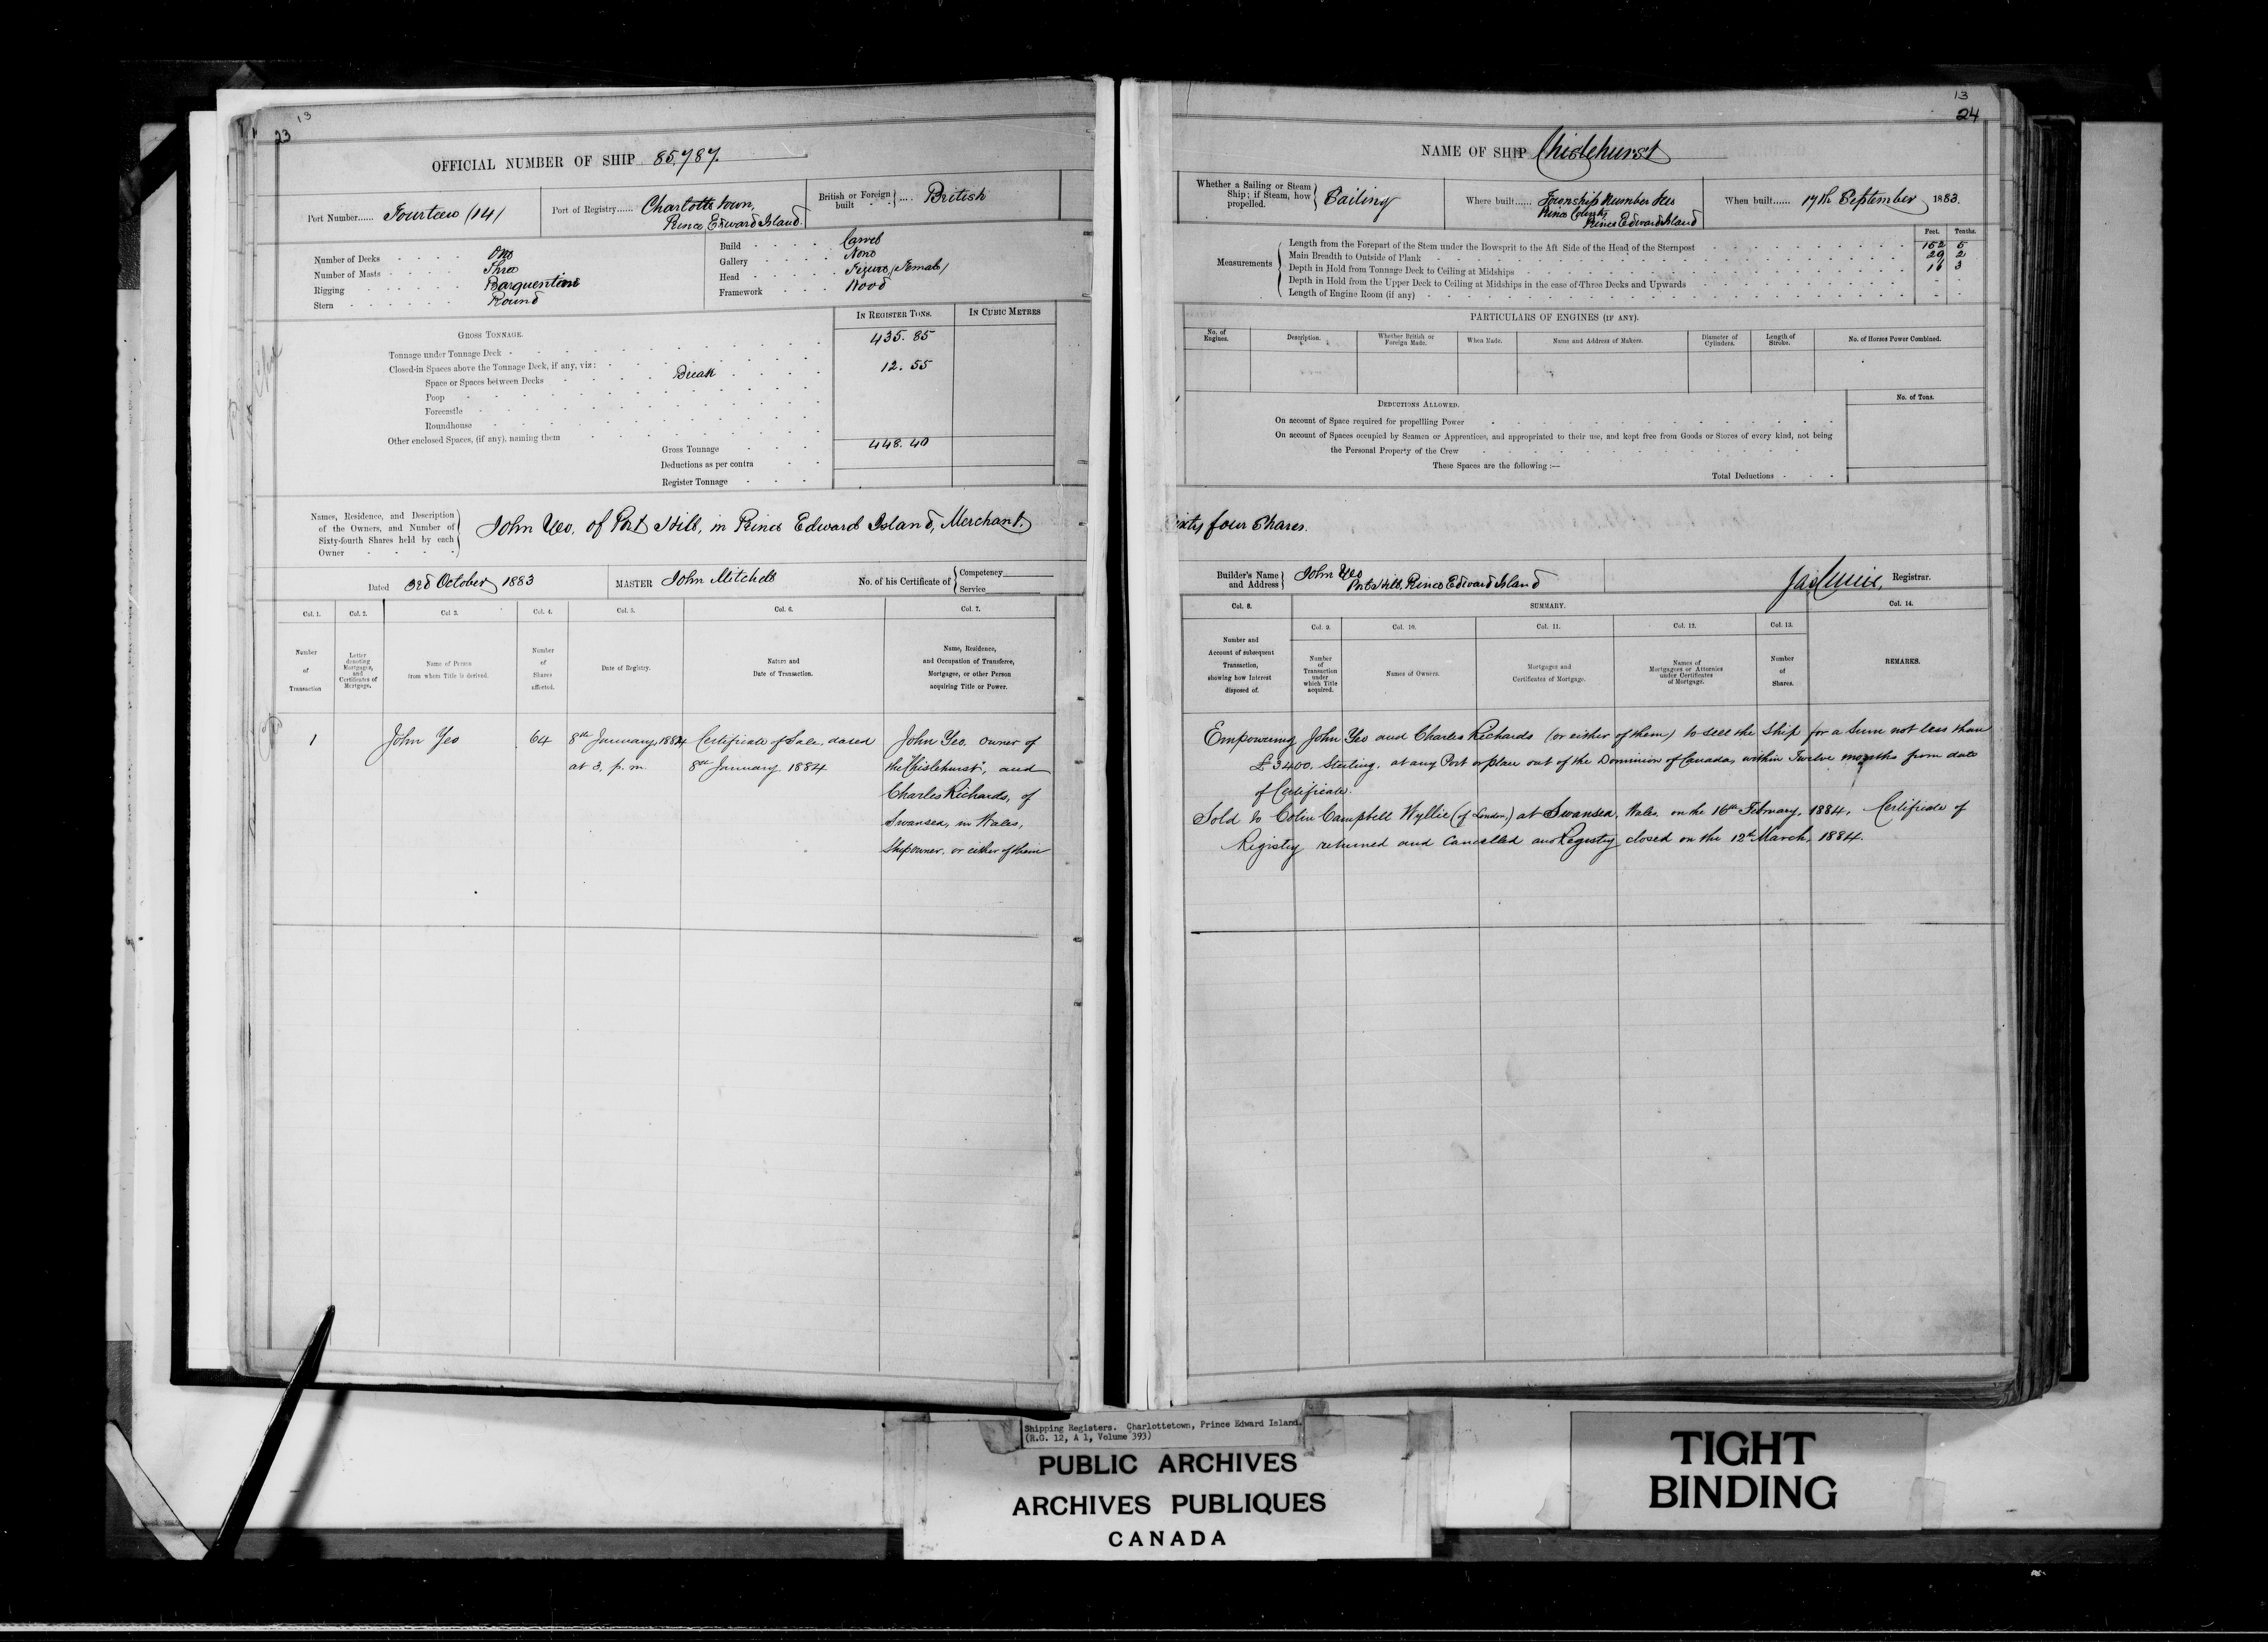 13
23
OFFICIAL NUMBER OF SHIP 85,787.
Port Number...... Fourteen /14/
Port of Registry...... Charlottetown,
Prince Edward Island.
British or Foreign built .... British
Number of Decks One
Number of Masts Three
Rigging Barquentine
Stern Round
Build Carvel
Gallery None
Head Figure /Female/
Framework Wood
GROSS TONNAGE.
IN REGISTER TONS.
IN CUBIC METRES
Tonnage under Tonnage Deck 435.85
Closed-in Spaces above the Tonnage Deck, if any, viz:
Space or Spaces between Decks Break 12.55
Poop
Forecastle
Roundhouse
Other enclosed Spaces, (if any), naming them
Gross Tonnage 448.40
Deductions as per contra
Register Tonnage
Names, Residence, and Description
of the Owners, and Number of
Sixty-fourth Shares held by each
Owner
John Yeo, of Port Hill, in Prince Edward Island, Merchant.
Dated 3rd October 1883
MASTER John Mitchell
No. of his Certificate of
Competency
Service
Col. 1. Col. 2. Col. 3. Col. 4. Col. 5. Col. 6. Col. 7.
Number of Transaction
Letter denoting Mortgages, and Certificates of Mortgage.
Name of Person from whom Title is derived.
Number of Shares affected.
Date of Registry.
Nature and Date of Transaction.
Name, Residence, and Occupation of Transferee, Mortgagee, or other Person acquiring Title or Power.
1 John Yeo 64 8th January, 1884 Certificate of Sale, dated John Yeo, owner of
at 3, p.m. 8th January 1884 the "Chislehurst", and
Charles Richards, of
Swansea, in Wales,
Shipowner, or either of them
13
24
NAME OF SHIP Chislehurst
Whether a Sailing or Steam
Ship; if Steam, how
propelled.
Sailing
Where built...... Township Number
Prince County
Prince Edward Island
When built...... 17th September 1883.
Feet. Tenths.
Measurements
Length from the Forepart of the Stem under the Bowsprit to the Aft Side of the Head of the Sternpost 152 5
Main Breadth to Outside of Plank 29 2
Depth in Hold from Tonnage Deck to Ceiling at Midships 16 3
Depth in Hold from the Upper Deck to Ceiling at Midships in the case of Three Decks and Upwards
Length of Engine Room (if any)
PARTICULARS OF ENGINES (IF ANY).
No. of Engines.
Description.
Whether British or Foreign Made.
When Made.
Name and Address of Makers.
Diameter of Cylinders.
Length of Stroke.
No. of Horses Power Combined.
DEDUCTIONS ALLOWED.
No. of Tons.
On account of Space required for propelling Power
On account of Spaces occupied by Seamen or Apprentices, and appropriated to their use, and kept free from Goods or Stores of every kind, not being
the Personal Property of the Crew
These Spaces are the following :—
Total Deductions
Sixty four Shares.
Builder's Name
and Address
John Yeo
Port Hill, Prince Edward Island
Registrar.
Col. 8.
SUMMARY.
Col. 14.
Col. 9. Col. 10. Col. 11. Col. 12. Col. 13.
Number and Account of subsequent Transaction, showing how Interest disposed of.
Number of Transaction under which Title acquired.
Names of Owners.
Mortgages and Certificates of Mortgage.
Names of Mortgagees or Attornies under Certificates of Mortgage.
Number of Shares.
REMARKS.
Empowering John Yeo and Charles Richards (or either of them) to sell the Ship for a Sum not less than
£3400. Sterling, at any Port or place out of the Dominion of Canada, within Twelve months from date
of Certificate.
Sold to Colin Campbell Wyllie (of London) at Swansea, Wales, on the 16th February, 1884. Certificate of
Registry returned and Cancelled and Registry closed on the 12th March, 1884.
Shipping Registers. Charlottetown, Prince Edward Island.
(R.G. 12, A 1, Volume 393)
PUBLIC ARCHIVES
ARCHIVES PUBLIQUES
CANADA
TIGHT
BINDING